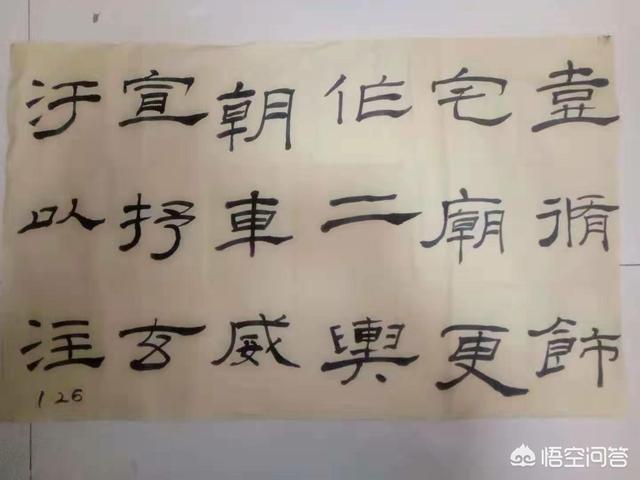 壺脩飾
宅廟更
作二輿
朝車威
宣抒玄
汙以注
1 26
悟空问答